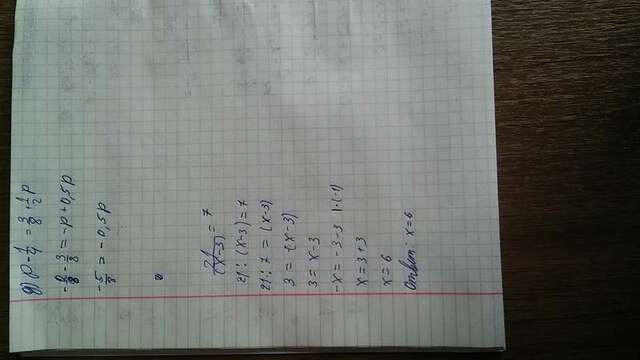 д) p - 1/4 = 3/8 + 1/2 p
- 3/8 = -p + 0,5p
- 5/8 = - 0,5p
21/(x-3) = 7
21 : (x-3) = 7
21 : 7 = (x-3)
3 = (x-3)
3 = x-3
-x = -3-3 |·(-1)
x = 3+3
x = 6
Ответ: x = 6